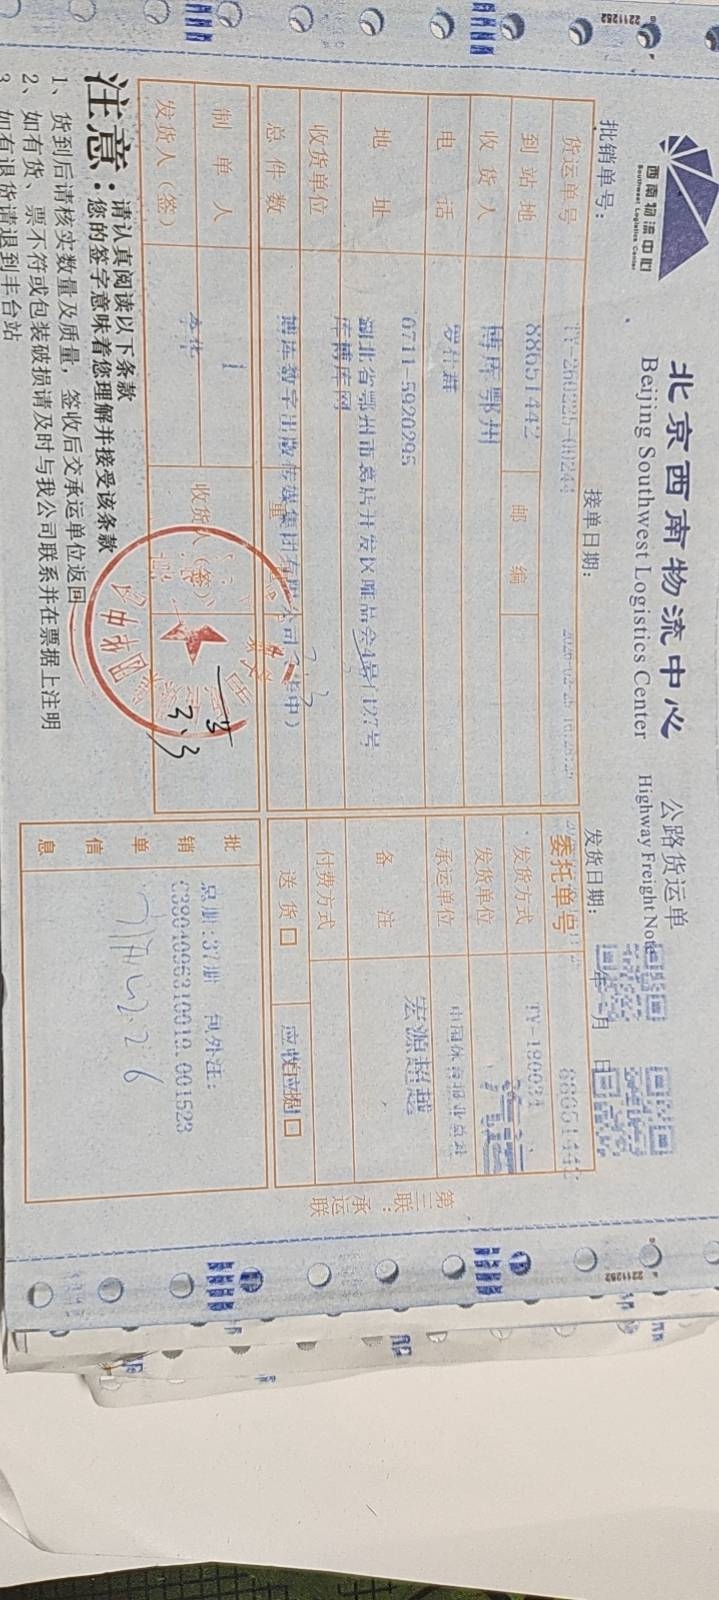 西南物流中心
Southwest Logistics Center
北京西南物流中心 公路货运单
Beijing Southwest Logistics Center Highway Freight Note
批销单号： 接单日期： 发货日期： 年 月 日
货运单号 TY-260225-00244 委托单号 88651442
到站地 88651442 邮编 发货方式 TY-180034
收货人 博库鄂州 发货单位
电话 承运单位 中国体育报业总社
地址 0711-5920295 备注 宏源超越
湖北省鄂州市葛店开发区唯品会4号门127号
收货单位 库博库网 付费方式
总件数 博库数字出版传媒集团有限公司 重 送货 应收应提
制单人 1 收货人（签）
发货人（签）
3.3
批销单信息
总册:37册 包外注:
C3804096310019.001623
2.26
第三联：承运联
注意：请认真阅读以下条款
您的签字意味着您理解并接受该条款
1、货到后请核实数量及质量，签收后交承运单位返回
2、如有货、票不符或包装破损请及时与我公司联系并在票据上注明
3、如有退货请退到丰台站
2211252
2211252